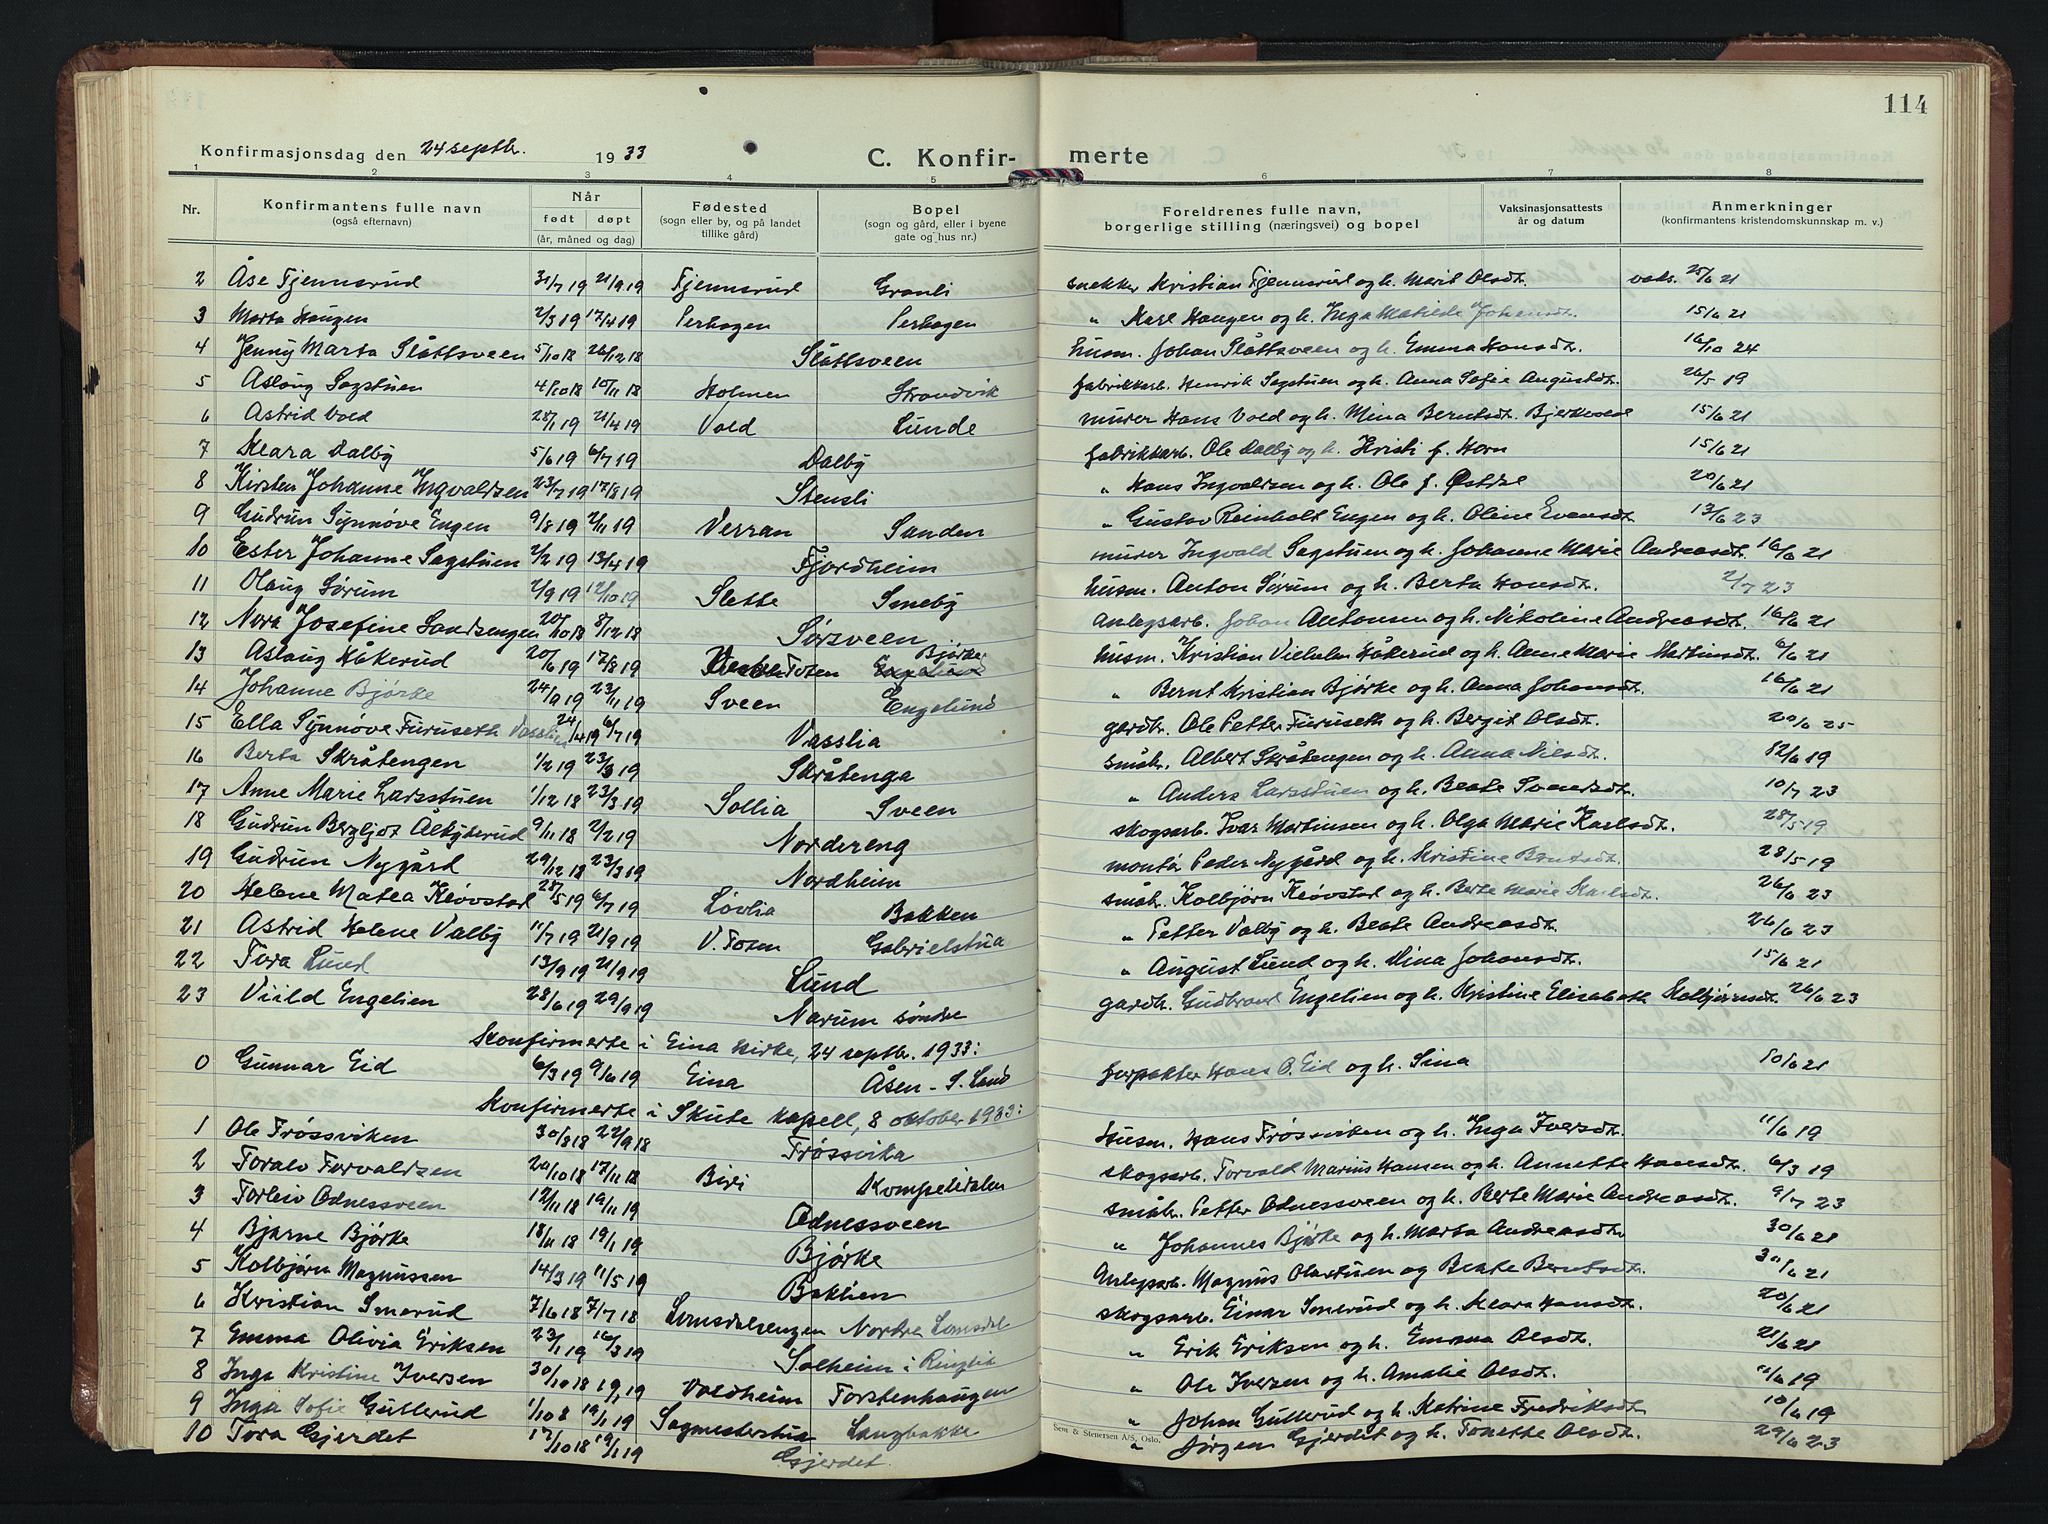 114
Konfirmasjonsdag den 24 septbr. 1933
C. Konfir- merte
1 2 3 4 5 6 7 8
Nr. Konfirmantens fulle navn (også efternavn) Når født døpt (år, måned og dag) Fødested (sogn eller by, og på landet tillike gård) Bopel (sogn og gård, eller i byene gate og hus nr.) Foreldrenes fulle navn, borgerlige stilling (næringsvei) og bopel Vaksinasjonsattests år og datum Anmerkninger (konfirmantens kristendomskunnskap m. v.)
2 Åse Fjennsrud 31/7 19 21/9 19 Fjennsrud Granli snekker Kristian Fjennsrud og h. Marit Olsdt. vaks. 25/6 21
3 Marta Haugen 2/3 19 17/4 19 Perhagen Perhagen " Karl Haugen og h. Inga Matilde Johansdt. 15/6 21
4 Jenny Marta Slåttsveen 5/10 18 26/12 18 Slåttsveen husm. Johan Slåttsveen og h. Emma Hansdt. 16/10 24
5 Aslaug Sagstuen 4/10 18 10/11 18 Holmen Strandvik fabrikkarb. Henrik Sagstuen og h. Anna Sofie Augustdt. 26/5 19
6 Astrid Vold 28/1 19 21/4 19 Vold Lunde murer Hans Vold og h. Mina Berntsdt. 15/6 21
7 Klara Dalby 5/6 19 6/7 19 Dalby fabrikkarb. Ole Dalby og h. Kristi f. Horn 15/6 21
8 Kirsten Johanne Ingvaldsen 23/7 19 17/8 19 Stensli " Hans Ingvaldsen og h. 20/6 21
9 Gudrun Synnøve Engen 9/8 19 2/11 19 Verran Sanden " Gustav Reinholt Engen og h. Oline Evensdt. 13/6 23
10 Ester Johanne Sagstuen 2/2 19 13/4 19 Fjordheim murer Ingvald Sagstuen og h. Johanne Marie Andreasdt. 16/6 21
11 Olaug Sørum 2/9 19 12/10 19 Slette Smeby husm. Anton Sørum og h. Berta Hansdt. 2/7 23
12 Nora Josefine Landsengen 20/10 18 8/12 18 Sørsveen anlegsarb. Johan Antonsen og h. Nikoline Andreasdt. 16/6 21
13 Aslaug Håkerud 20/6 19 17/8 19 Toten Bjørke husm. Kristian Vilhelm Håkerud og h. Anne Marie Martinsdt. 6/6 21
14 Johanne Bjørke 24/9 19 23/11 19 Sveen Engelund " Bernt Kristian Bjørke og h. Anna Johansdt. 16/6 21
15 Ella Synnøve Furuseth Vasslien 24/4 19 6/7 19 Vasslia gardbr. Ole Petter Furuseth og h. Bergit Olsdt. 20/6 25
16 Berta Skråtengen 1/2 19 23/3 19 Skråtenga småbr. Albert Skråtengen og h. Anna Nilsdt. 12/6 19
17 Anne Marie Larsstuen 1/12 18 23/3 19 Sollia Sveen " Anders Larsstuen og h. Beate Svensdt. 10/7 23
18 Gudrun Bergljot Ålbyterud 9/11 18 2/2 19 Nordereng skogsarb. Ivar Martinsen og h. Olga Marie Karlsdt. 28/5 19
19 Gudrun Nygård 29/12 18 23/3 19 Nordheim montør Peder Nygård og h. Kristine Berntsdt. 28/5 19
20 Helene Matea Kløvstad 28/5 19 6/7 19 Løvlia Bakken småbr. Kolbjørn Kløvstad og h. Berte Marie Karlsdt. 26/6 23
21 Astrid Helene Valby 11/7 19 21/9 19 V. Toten Gabrielstua " Petter Valby og h. Beate Andreasdt. 26/6 23
22 Tora Lund 13/9 19 21/9 19 Lund " August Lund og h. Mina Johansdt. 15/6 21
23 Viild Engelien 28/6 19 29/9 19 Narum søndre gardbr. Gudbrand Engelien og h. Kristine Elisabeth Kolbjørnsdt. 26/6 23
Konfirmerte i Eina kirke, 24 septbr. 1933:
0 Gunnar Eid 6/3 19 9/6 19 Eina Åsen - S. Land forpakter Hans O. Eid og h. Sina 10/6 21
Konfirmerte i Skute kapell, 8 oktober 1933:
1 Ole Frøssviken 30/8 18 22/9 18 Frøssvika Husm. Hans Frøssviken og h. Inga Iversdt. 11/6 19
2 Toralv Torvaldsen 20/10 18 17/11 18 Biri Kompelidalen skogsarb. Torvald Marius Hansen og h. Annette Hansdt. 6/3 19
3 Torleiv Odnessveen 12/11 18 19/1 19 Odnessveen småbr. Petter Odnessveen og h. Berte Marie Andreasdt. 9/7 23
4 Bjarne Bjørke 18/11 18 19/1 19 Bjørke " Johannes Bjørke og h. Marta Andreasdt. 30/6 21
5 Kolbjørn Magnussen 14/3 19 11/5 19 Baklien Anlegsarb. Magnus Olastuen og Beate Berntsdt. 30/6 21
6 Kristian Smerud 7/6 18 7/7 18 Lomsdalsengen Nordre Lomsdal skogsarb. Einar Smerud og h. Klara Hansdt. 20/6 21
7 Emma Olivia Eriksen 23/1 19 16/3 19 Solheim i Ringlia " Erik Eriksen og h. Emma Olsdt. 21/6 21
8 Inga Kristine Iversen 30/10 18 19/1 19 Voldheim Torstenhaugen " Ole Iversen og h. Amalie Olsdt. 11/6 19
9 Inga Sofie Gullerud 1/10 8 19/1 19 Sagmesterstua Langbakke " Johan Gullerud og h. Katrine Fredriksdt. 10/6 19
10 Tora Gjerdet 17/10 18 19/1 19 Gjerdet. " Jørgen Gjerdet og h. Tonette Olsdt. 29/6 23
Sem & Stenersen A/S, Oslo.